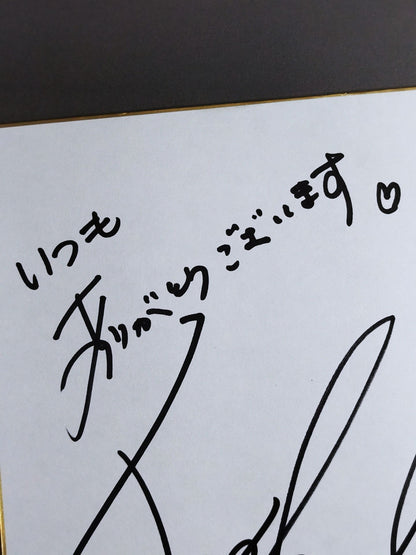 いつも
ありがとうございます♡